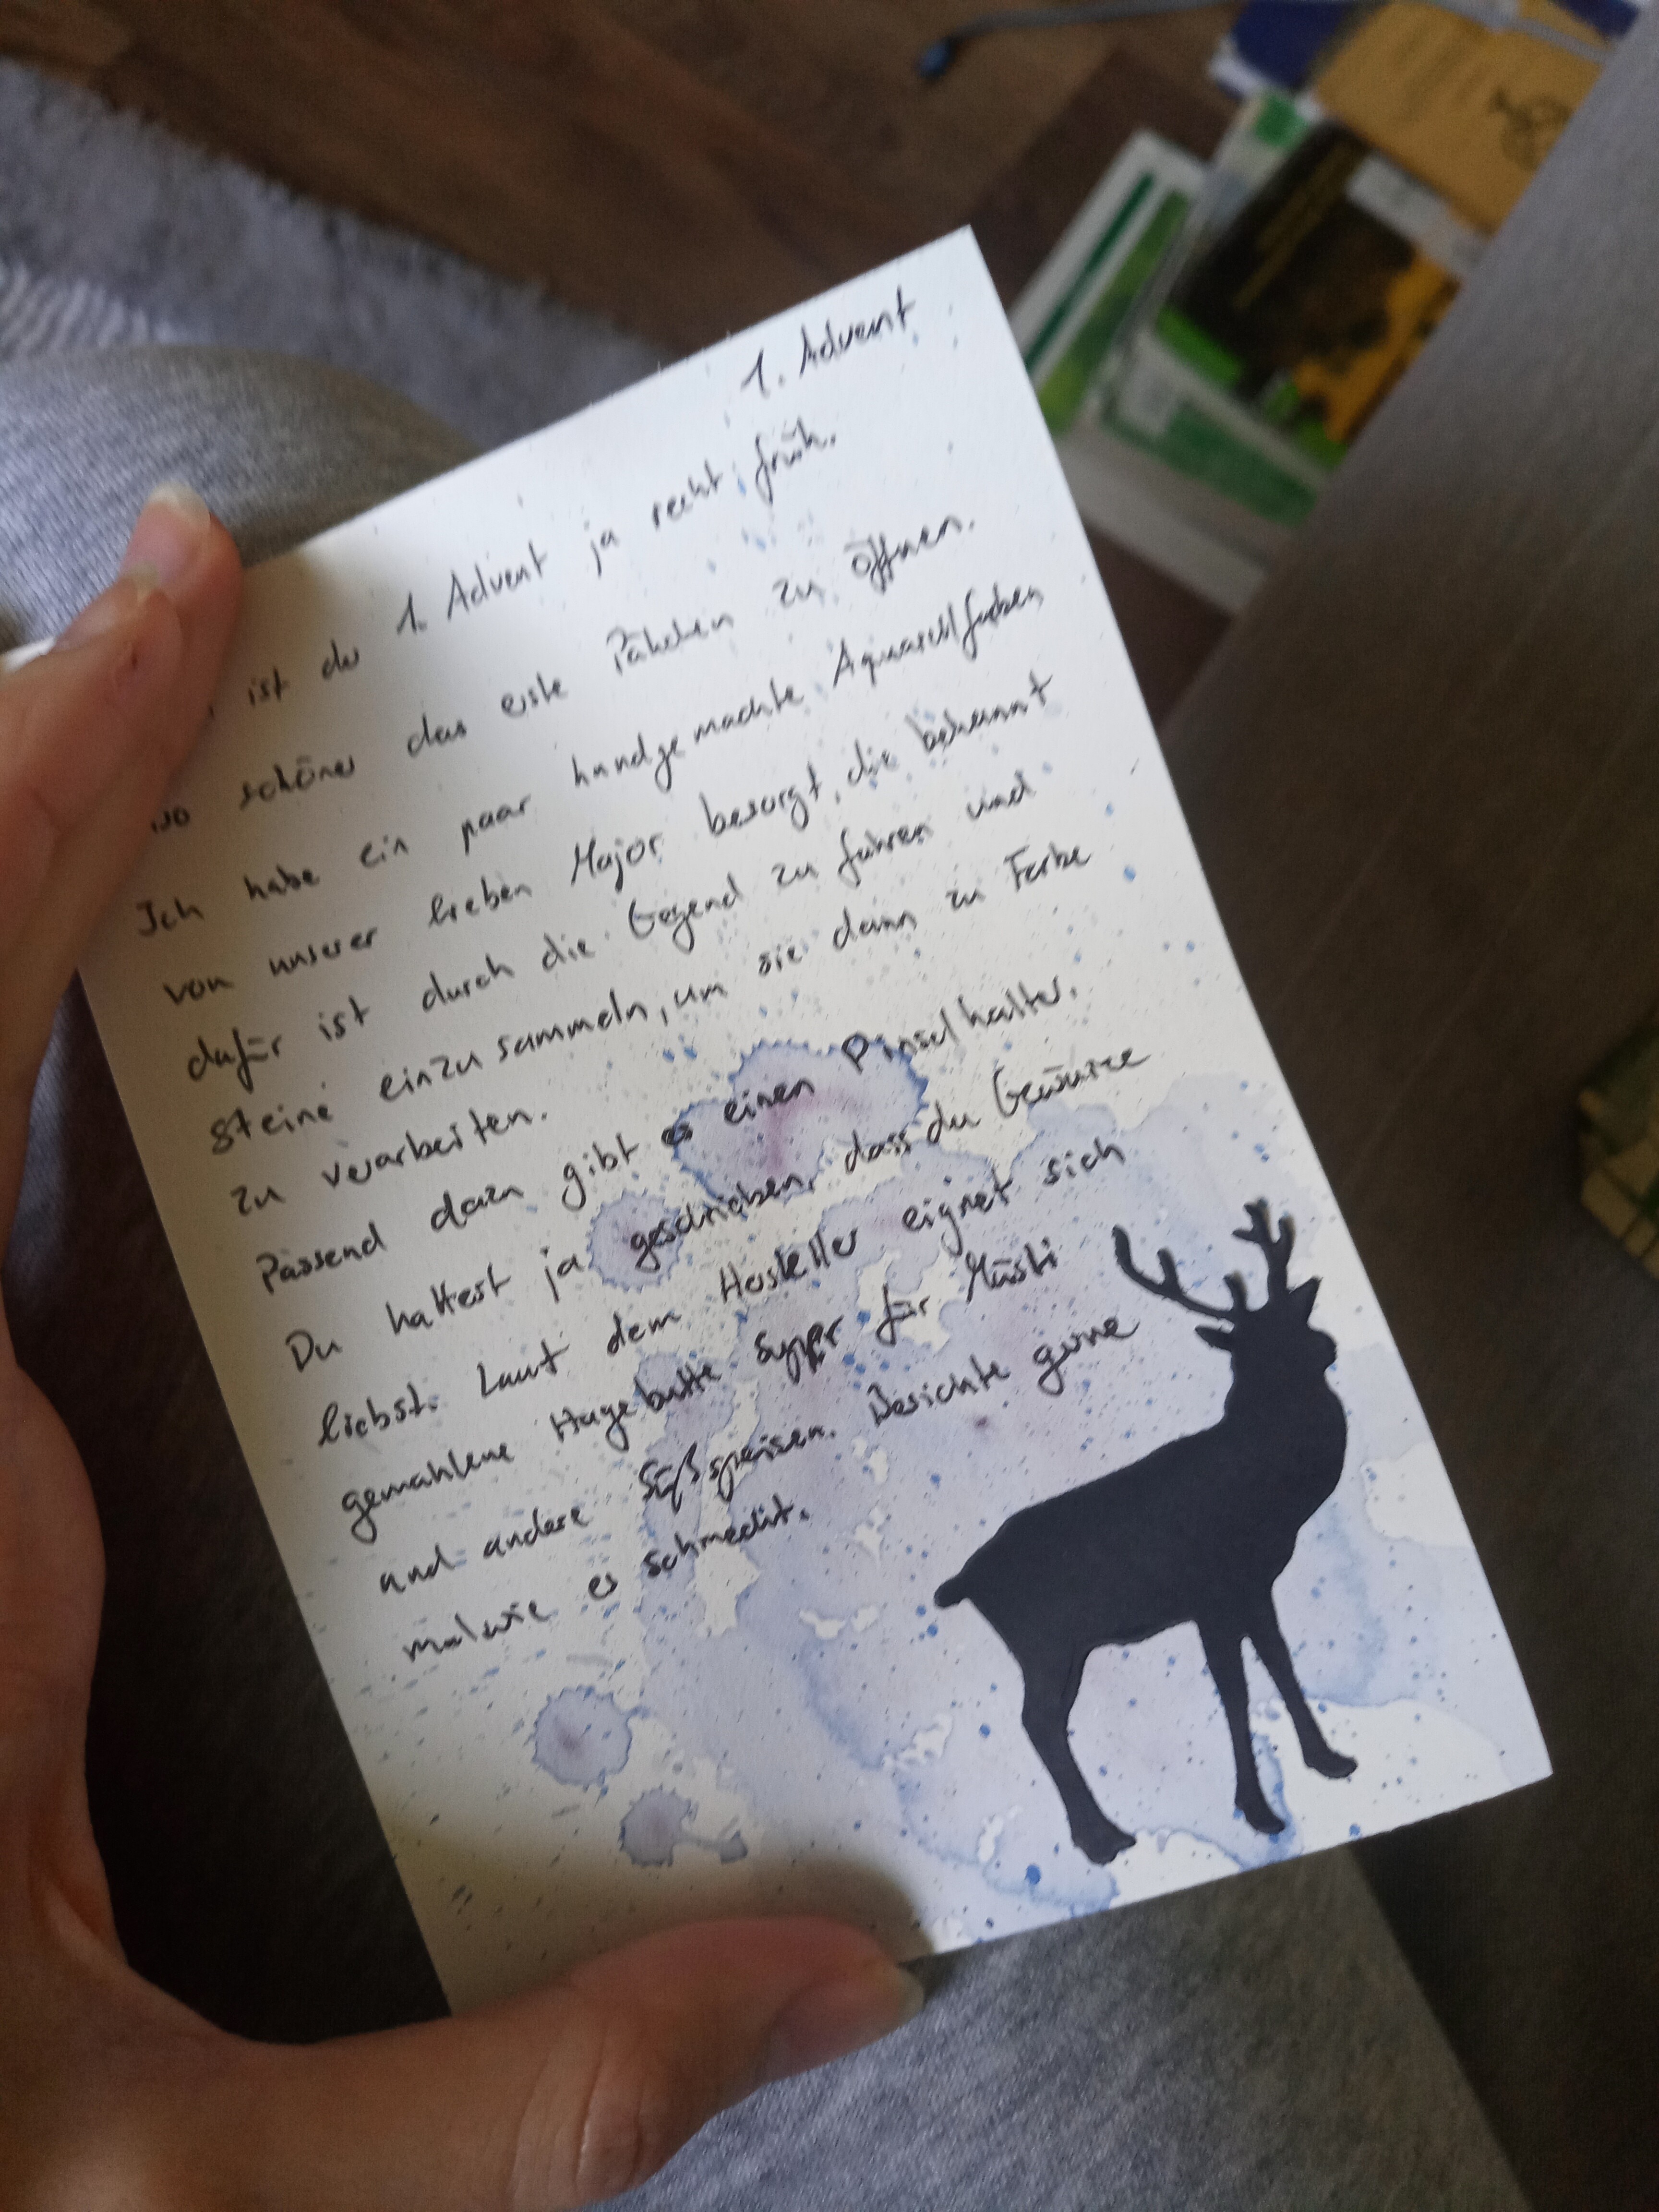 1. Advent
ist der 1. Advent ja recht früh.
so schöner das erste Päkchen zu öffnen.
Ich habe ein paar handgemachte Aquarellfarben
von unserer lieben Major besorgt, die bekannt
dafür ist durch die Gegend zu fahren und
Steine einzusammeln, um sie dann zu Farbe
zu verarbeiten.
Passend dazu gibt es einen Pinselhalter.
Du hattest ja geschrieben, dass du Gewürze
liebst. Laut dem Hersteller eignet sich
gemahlene Hagebutte super für Müsli
und andere Süßspeisen. Berichte gerne
mal wie es schmeckt.